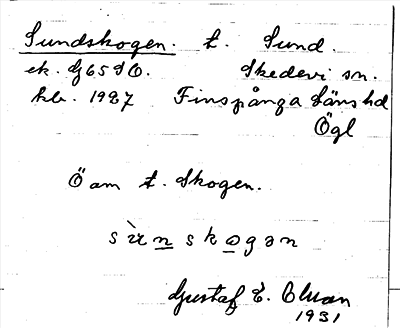 Sundskogen. t. Sund.
ek. Gj65SO. Skedevi sn.
kb. 1927 Finspånga läns hd
Ögl
Ö om t. Skogen.
sùnskogən
Gustaf E. Olson
1931